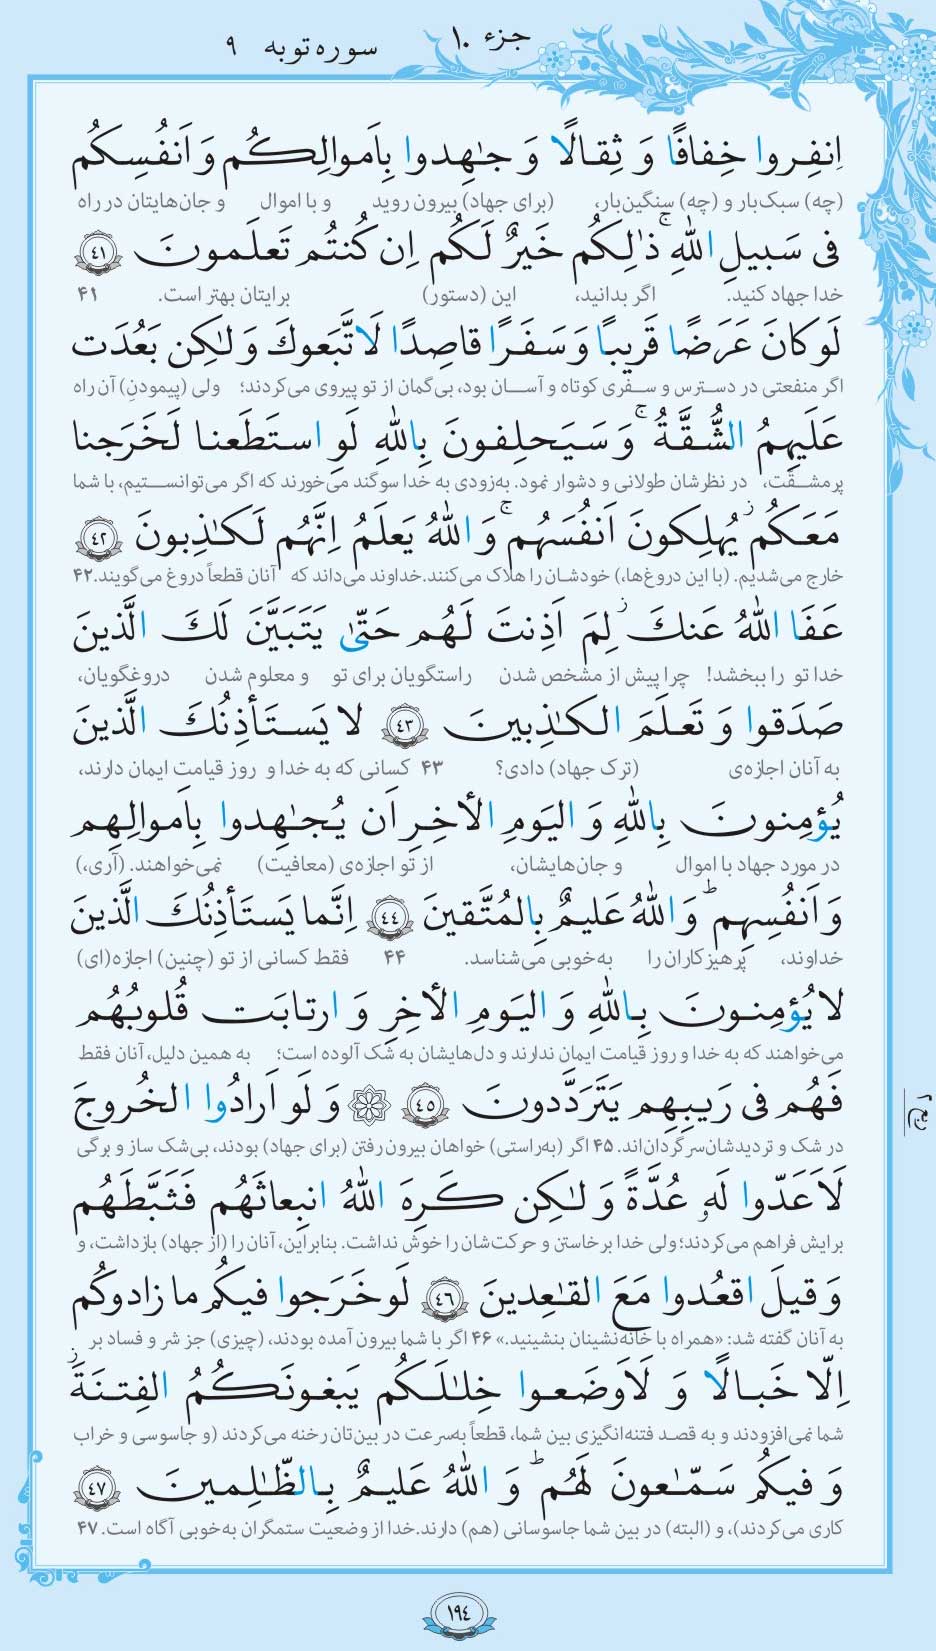 جزء ۱۰ سوره توبه ۹
اِنفِروا خِفافًا وَ ثِقالًا وَ جـٰهِدوا بِاَموالِكُم وَ اَنفُسِكُم
(چه) سبک‌بار و (چه) سنگین‌بار، (برای جهاد) بیرون روید و با اموال و جان‌هایتان در راه
فی سَبیلِ اللّٰهِ ۚ ذٰلِكُم خَیرٌ لَكُم اِن كُنتُم تَعلَمونَ ﴿٤١﴾
خدا جهاد کنید. اگر بدانید، این (دستور) برایتان بهتر است. ۴۱
لَو كانَ عَرَضًا قَریبًا وَ سَفَرًا قاصِدًا لَاتَّبَعوكَ وَ لـٰكِن بَعُدَت
اگر منفعتی در دسترس و سفری کوتاه و آسان بود، بی‌گمان از تو پیروی می‌کردند؛ ولی (پیمودنِ) آن راه
عَلَیهِمُ الشُّقَّةُ ۚ وَ سَیَحلِفونَ بِاللّٰهِ لَوِ استَطَعنا لَخَرَجنا
پرمشقّت، در نظرشان طولانی و دشوار نمود. به‌زودی به خدا سوگند می‌خورند که اگر می‌توانستیم، با شما
مَعَكُم ز یُهلِكونَ اَنفُسَهُم ۚ وَ اللّٰهُ یَعلَمُ اِنَّهُم لَكـٰذِبونَ ﴿٤٢﴾
خارج می‌شدیم. (با این دروغ‌ها،) خودشان را هلاک می‌کنند. خداوند می‌داند که آنان قطعاً دروغ می‌گویند. ۴۲
عَفَا اللّٰهُ عَنكَ ز لِمَ اَذِنتَ لَهُم حَتّیٰ یَتَبَیَّنَ لَكَ الَّذینَ
خدا تو را ببخشد! چرا پیش از مشخص شدن راستگویان برای تو و معلوم شدن دروغگویان،
صَدَقوا وَ تَعلَمَ الكـٰذِبینَ ﴿٤٣﴾ لا یَستَأذِنُكَ الَّذینَ
به آنان اجازه‌ی (ترک جهاد) دادی؟ ۴۳ کسانی که به خدا و روز قیامت ایمان دارند،
یُؤمِنونَ بِاللّٰهِ وَ الیَومِ الأخِرِ اَن یُجـٰهِدوا بِاَموالِهِم
در مورد جهاد با اموال و جان‌هایشان، از تو اجازه‌ی (معافیت) نمی‌خواهند. (آری،)
وَ اَنفُسِهِم ؕ وَ اللّٰهُ عَلیمٌ بِالمُتَّقینَ ﴿٤٤﴾ اِنَّما یَستَأذِنُكَ الَّذینَ
خداوند، پرهیزکاران را به‌خوبی می‌شناسد. ۴۴ فقط کسانی از تو (چنین) اجازه(ای)
لا یُؤمِنونَ بِاللّٰهِ وَ الیَومِ الأخِرِ وَ ارتابَت قُلوبُهُم
می‌خواهند که به خدا و روز قیامت ایمان ندارند و دل‌هایشان به شک آلوده است؛ به همین دلیل، آنان فقط
فَهُم فی رَیبِهِم یَتَرَدَّدونَ ﴿٤٥﴾ وَ لَو اَرادُوا الخُروجَ
در شک و تردیدشان سرگردان‌اند. ۴۵ اگر (به‌راستی) خواهان بیرون رفتن (برای جهاد) بودند، بی‌شک ساز و برگی
لَاَعَدّوا لَهٗ عُدَّةً وَ لـٰكِن كَرِهَ اللّٰهُ انبِعاثَهُم فَثَبَّطَهُم
برایش فراهم می‌کردند؛ ولی خدا برخاستن و حرکت‌شان را خوش نداشت. بنابراین، آنان را (از جهاد) بازداشت، و
وَ قیلَ اقعُدوا مَعَ القـٰعِدینَ ﴿٤٦﴾ لَو خَرَجوا فیكُم ما زادوكُم
به آنان گفته شد: «همراه با خانه‌نشینان بنشینید.» ۴۶ اگر با شما بیرون آمده بودند، (چیزی) جز شر و فساد بر
اِلّا خَبالًا وَ لَاَوضَعوا خِلـٰلَكُم یَبغونَكُمُ الفِتنَةَ ز
شما نمی‌افزودند و به قصد فتنه‌انگیزی بین شما، قطعاً به‌سرعت در بین‌تان رخنه می‌کردند (و جاسوسی و خراب
وَ فیكُم سَمّـٰعونَ لَهُم ؕ وَ اللّٰهُ عَلیمٌ بِالظّـٰلِمینَ ﴿٤٧﴾
کاری می‌کردند)، و (البته) در بین شما جاسوسانی (هم) دارند. خدا از وضعیت ستمگران به‌خوبی آگاه است. ۴۷
۱۹۴